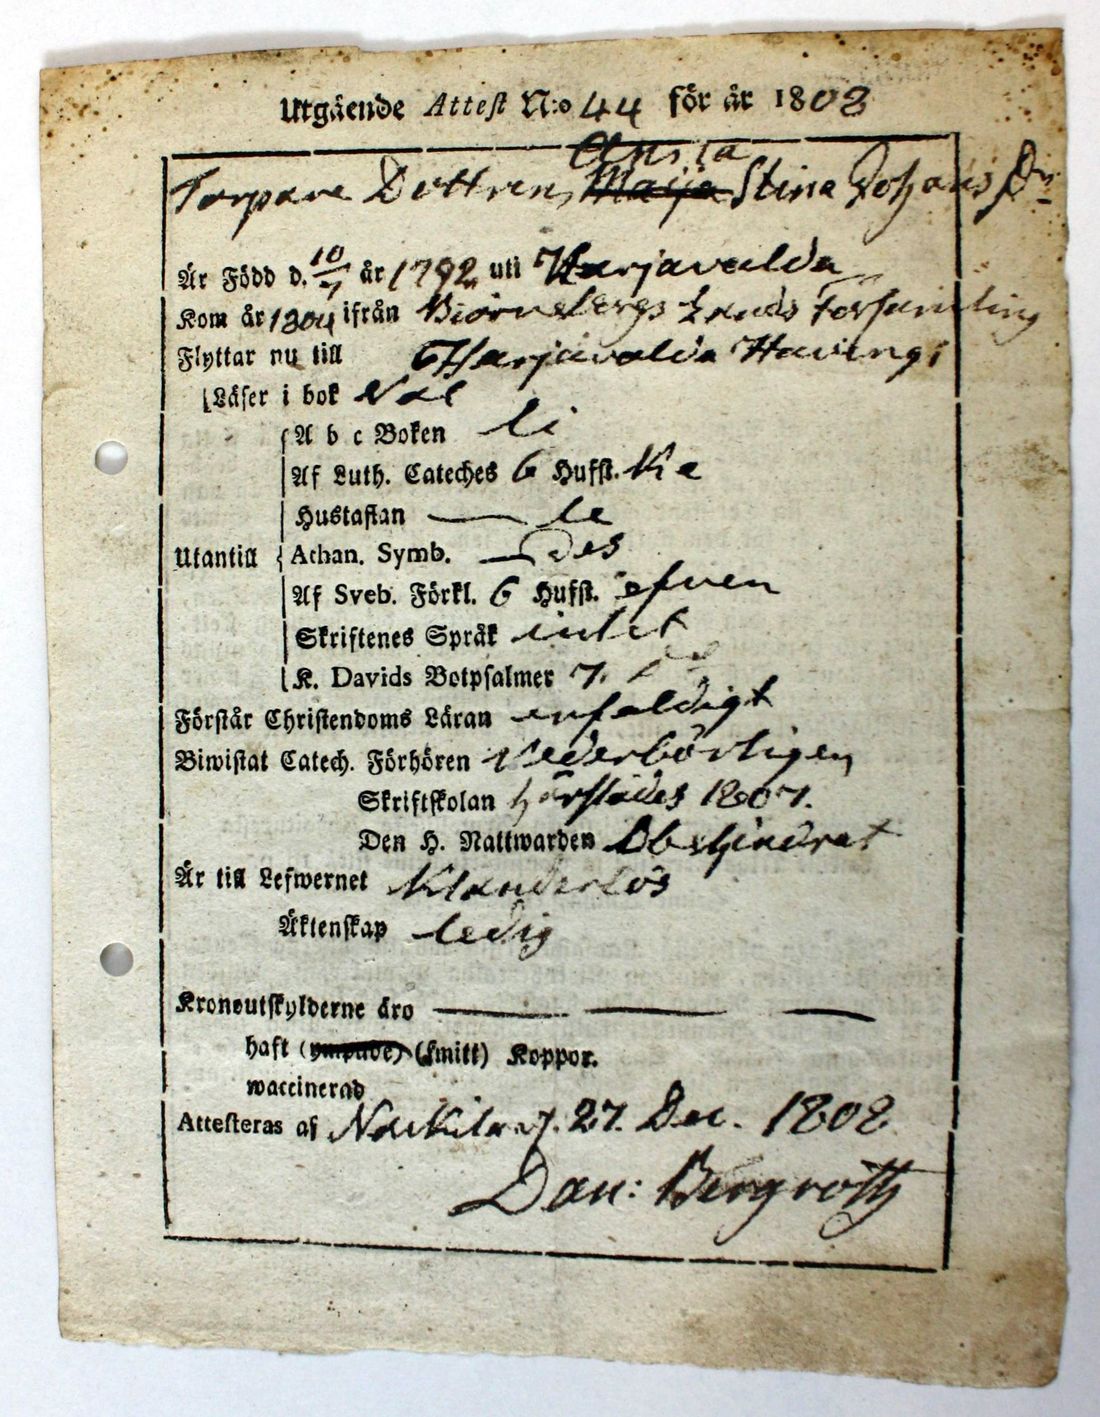 Utgående Attest N:o 44 för år 1808
Anna
Torpare Dottren, Maija Stina Johans Dr
Är Född d. 10/7 år 1792 uti Harjavalda
Kom år 1804 ifrån Biörneborgs Lands Församling
Flyttar nu till Harjavalda
Läser i bok Väl
A b c Boken
Af Luth. Cateches 6 Hufst.
Hustaflan
Utantill Athan. Symb.
Af Sveb. Förkl. 6 Hufst. efven
Skriftenes Språk intet
K. Davids Botpsalmer 7.
Förstår Christendoms Läran enfaldigt
Biwistat Catech. Förhören vederbörligen
Skriftskolan härstädes 1807.
Den H. Nattwarden Obehindrat
Är till Lefwernet Klanderlös
Äktenskap ledig
Kronoutskylderne äro
haft (ympade) (smitt) Koppor.
waccinerad
Attesteras af Nackila d. 27. Dec. 1808
Dan: Bergroth